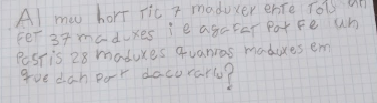 Al meu hort ric 7 maduxer enre Tots un
Fet 37 maduxes i e agafat Per Fe un
Pastis 28 maduxes quantes maduxes em
que dan per decorarlo?